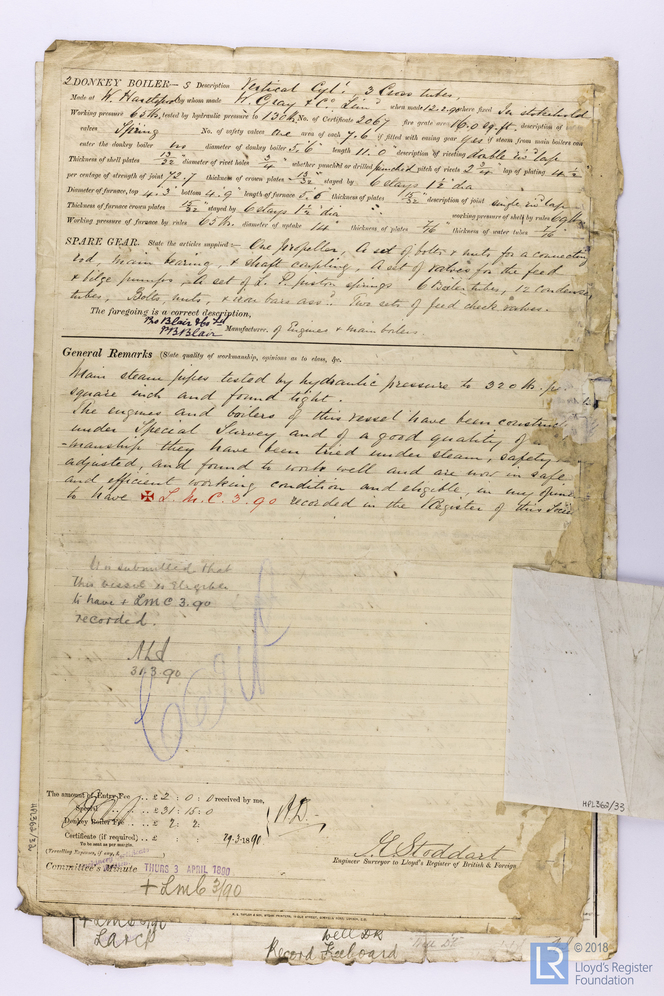 2 DONKEY BOILER— S Description Vertical Cyl'l 3 Cross tubes,
Made at W. Hartlepool by whom made W. Gray & Co. Lim'd when made 12.2.90 where fixed In stokehold
Working pressure 65 lb. tested by hydraulic pressure to 130 lb. No. of Certificate 2067 fire grate area 16.0 sq. ft. description of
valves Spring No. of safety valves one area of each 7.6 if fitted with easing gear yes if steam from main boilers can
enter the donkey boiler no diameter of donkey boiler 5.6 length 11.0 description of riveting double riv'd lap
Thickness of shell plates 13/32 diameter of rivet holes 3/4 whether punched or drilled punched pitch of rivets 2 3/4 lap of plating 4 1/2
per centage of strength of joint 72.7 thickness of crown plates 15/32 stayed by 6 stays 1 1/2 dia
Diameter of furnace, top 4.3 bottom 4.9 length of furnace 5.6 thickness of plates 15/32 description of joint single riv'd lap
Thickness of furnace crown plates 15/32 stayed by 6 stays 1 1/2 dia working pressure of shell by rules 69 lb
Working pressure of furnace by rules 65 lb. diameter of uptake 14 thickness of plates 7/16 thickness of water tubes 7/16
SPARE GEAR. State the articles supplied:— One propeller, A set of bolts & nuts for a connecting
rod, main bearing, & shaft coupling, A set of valves for the feed
& bilge pumps, A set of L. P. piston springs 6 Boiler tubes, 12 Condenser
tubes, Bolts, nuts, & iron bars ass'd. Two sets of feed check valves.
The foregoing is a correct description,
Pro Blair & Co Ld
Blair Manufacturer. of Engines & main boilers.
General Remarks (State quality of workmanship, opinions as to class, &c.
Main steam pipes tested by hydraulic pressure to 320 lb. per
square inch and found tight.
The engines and boilers of this vessel have been construct
under Special Survey and of a good quality of
-manship they have been tried under steam, safety
adjusted, and found to work well and are now in safe
and efficient working condition and eligible, in my opinion
to have ✠ L. M. C. 3. 90 recorded in the Register of this Socie
It is submitted that
this vessel is eligible
to have + LMC 3.90
recorded.
31.3.90
The amount of Entry Fee .. £ 2 : 0 : 0 received by me,
Special .. .. £ 31 : 15 : 0
Donkey Boiler Fee .. £ 2 : 2 :
Certificate (if required) .. £ : : 29.3.1890
To be sent as per margin.
(Travelling Expenses, if any, £
G. Stoddart
Engineer Surveyor to Lloyd's Register of British & Foreign
Committee's Minute THURS 3 APRIL 1890
+ Lmc 3/90
+ LMC 3/90
LARCP
Well Dk
Record Freeboard
HPL362/32
HPL362/33
LR
© 2018
Lloyd's Register
Foundation